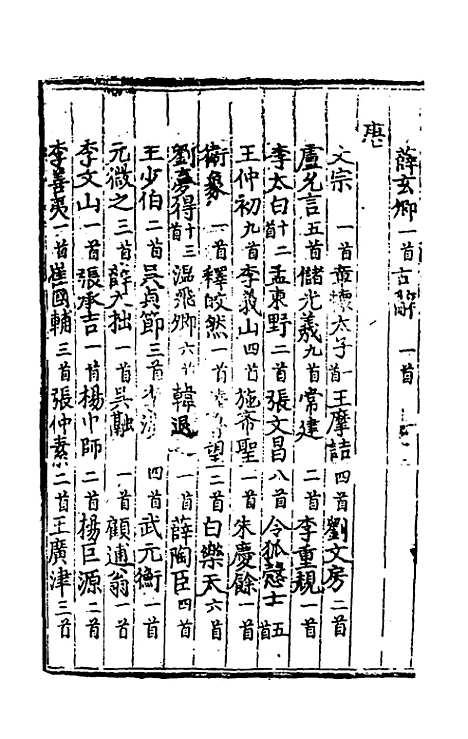 薛玄卿一首古辭一首
唐
文宗一首章懷太子一首王摩詰四首劉文房二首
盧允言五首儲光羲九首常建二首李重規一首
李太白十二首孟東野二首張文昌八首令狐愨士五首
王仲初九首李義山四首施希聖一首朱慶餘一首
衛象一首釋皎然一首望二首白樂天六首
劉夢得十三首溫飛卿六首韓退薛陶臣四首
王少伯二首吳貞節三首李四首武元衡一首
元微之三首薛大拙一首吳融一首顧逋翁一首
李文山一首張承吉一首楊巾師二首楊巨源二首
李善夷一首崔國輔三首張仲素二首王廣津三首